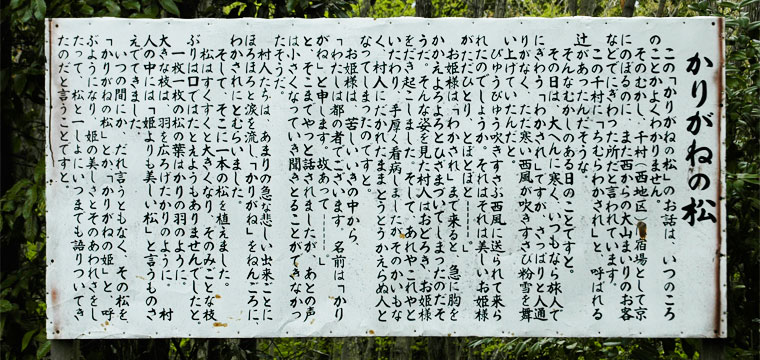 かりがねの松
この「かりがねの松」のお話は、いつのころ
のことかよくわかりません。
そのむかし、千村(西地区)は宿場として京
にのぼるのに、また西からの大山まいりのお客
などでにぎわった所だと言われています。
この千村に「ちむらわかされ」と、呼ばれる
辻があったんだそうな。
そんなむかしのある日のことですと。
その日は、大へんに寒く、いつもなら旅人で
にぎわう「わかされ」ですが、さっぱりと人通
りがなく、ただ寒い西風が吹きすさび粉雪を舞
い上げていたんだと。
ぴゅうぴゅう吹きすさぶ西風に送られて来ら
れたのでしょうか、それはそれは美しいお姫様
がただひとり、とぼとぼと……。
お姫様は、「わかされ」まで来ると、急に胸を
かかえよろよろとひざまついてしまったのだそ
うだ。そんな姿を見た村人はおどろき、お姫様
をだき起こしました。そして、あれやこれやと
いたわり、手厚く看病しましたがそのかいもな
く、村人にだかれたままとうとうかえらぬ人と
なってしまったのですと。
お姫様は、苦しいいきの中から、
「わたしは都の者でございます。名前は「かり
がね」と申します。故あって……」
と、そこまでやっと話されましたが、あとの声
は小さくなっていき聞きとることができなかっ
たそうだ。
村人たちは、あまりの急な悲しい出来ごとに
ほろほろと涙を流し、「かりがね」をねんごろに、
わかされにとむらいました。
そして、そこに一本の松を植えました。
松はすくすくと大きくなり、そのみごとな枝
ぶりは口でたとえようもありませんでしたと。
一枚一枚の松の葉はかりの羽のように、
大きな枝は、羽を広げたかりのように。 村
人の中には「姫よりも美しい松」と言うものさ
えでてきました。
いつの間にか、だれ言うともなく、その松を
「かりがねの松」とか「かりがねの姫」と、呼
ぶようになり、姫の美しさとそのあわれさをし
たって、松と一しょにいつまでも語りついでき
たのだと言うことですと。